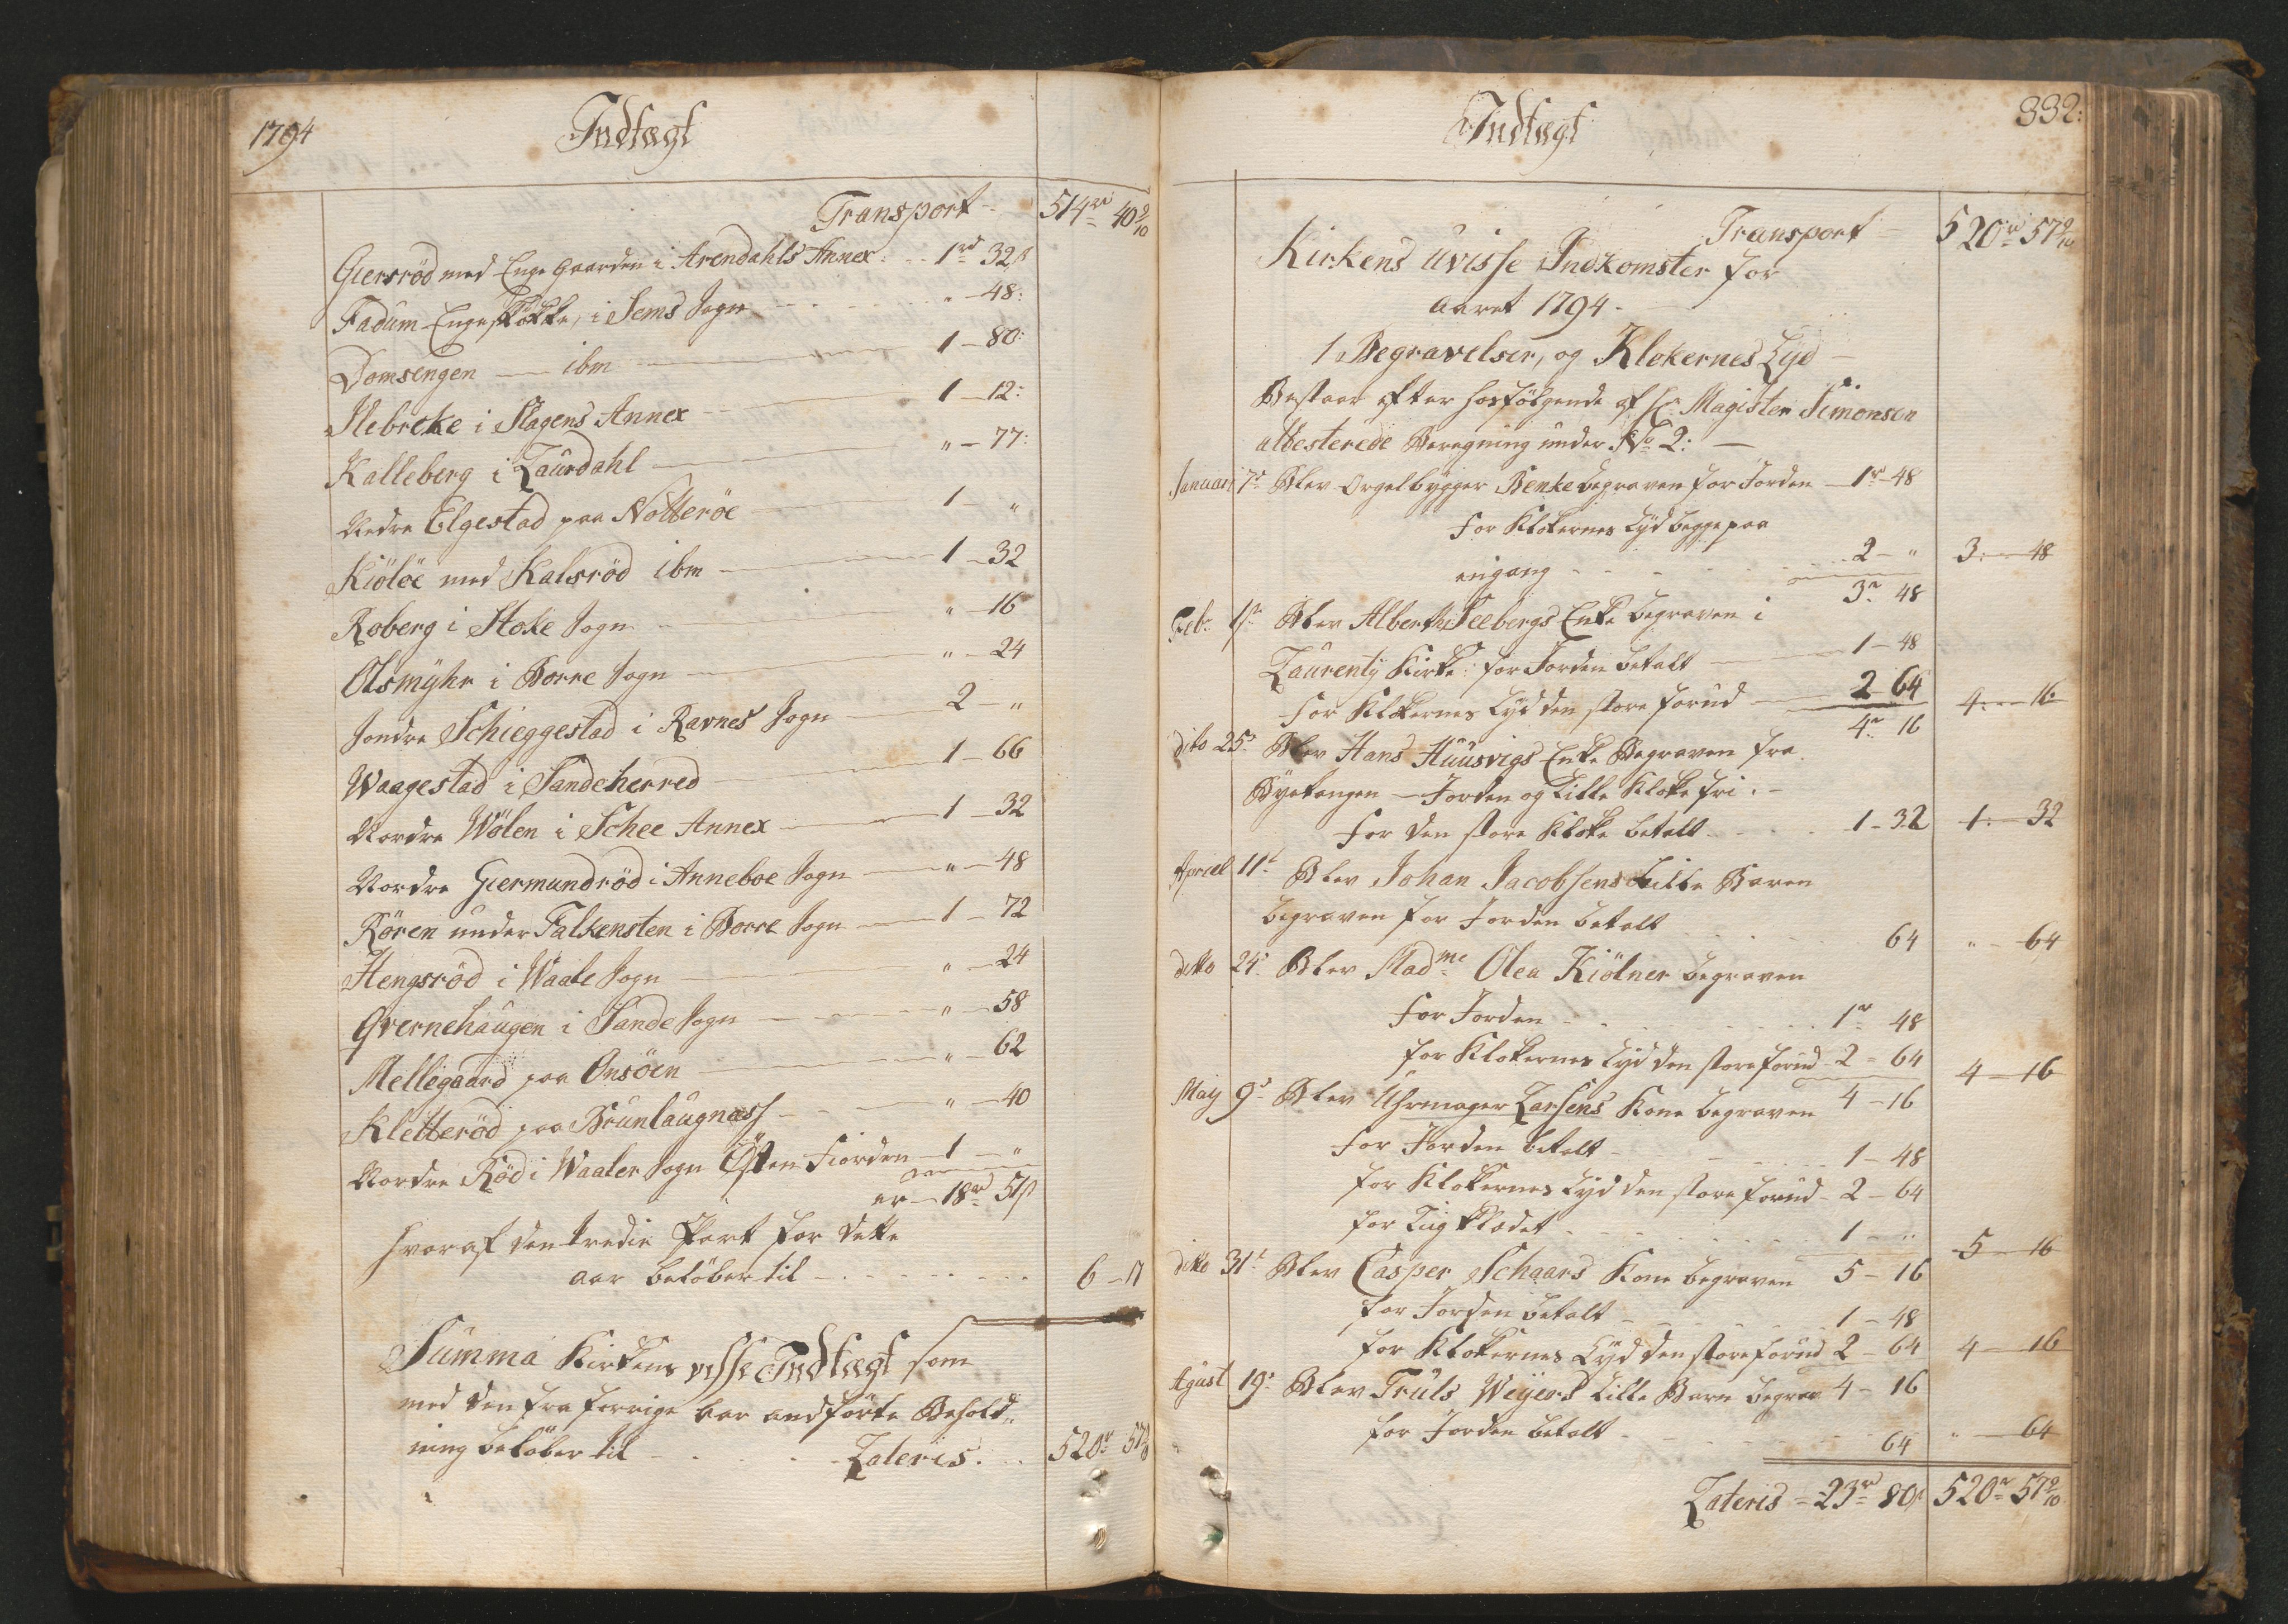 1794
Indtægt
Transport - 514rd 40 9/10
Giersröd med Enge Gaarden i Arendahls Annex - 1rd 32ß
Fadum Engeskökke, i Sems Sogn - " - 48:
Domsengen - ibm - 1 - 80:
Ilebreke i Slagens Annex - 1 - 12:
Kalleberg i Laurdahl - " - 77:
Nedre Elgestad paa Nötteröe - 1 - "
Kiölöe med Kalsröd ibm - 1 - 32
Roberg i Stoke Sogn - " - 16
Olsmyhr i Borre Sogn - " - 24
Söndre Schieggestad i Ravnes Sogn - 2 - "
Waagestad i Sandeherred - 1 - 66
Nordre Wölen i Schee Annex - 1 - 32
Nordre Giermundröd i Anneboe Sogn - " - 48
Rören under Falkensten i Borre Sogn - 1 - 72
Hengsröd i Waale Sogn - " - 24
Qvernehaugen i Sande Sogn - " - 58
Mellegaard paa Onsöen - " - 62
Kletteröd paa Brunlaugnæss - " - 40
Nordre Röd i Waaler Sogn Östen Fiorden - 1 - "
er - 18rd 51ß
hvoraf den tredie Part for dette
aar belöber til - 6 - 17
Summa Kirkens visse Indtægt som
med den fra forrige aar andförte Behold,,
ning belöber til - Lateris. 520rd 57 9/10
332:
Indtægt
Transport - 520rd 57 9/10
Kirkens uvisse Indkomster for
aaret 1794 -
1 Begravelser, og Klokernes Lyd -
Bestaar efter hosfölgende af Hr Magister Simonsen
attesterede Beregning under No 2: -
Januari 7de Blev Orgelbygger Benke begraven for Jorden - 1rd 48
For Klokernes Lyd begge paa
eengang - 2 - " 3 - 48
3rd 48
Febr. 1ste Blev Alberth Seebergs Enke begraven i
Laurentÿ Kirke: for Jorden betalt - 1 - 48
For Klokernes Lyd den store forud - 2 64 4 - 16
4rd 16
dito 25de Blev Hans Huusvigs Enke Begraven fra
Byetangen - Jorden og Lille Kloke fri. -
For den store Kloke betalt - 1 - 32 1 - 32
Apriel 11te Blev Johan Jacobsens Lille Baren
begraven for Jorden betalt - 64 " - 64
ditto 24de Blev Madme Olea Kiölner begraven
for Jorden - 1rd 48
for Klokernes Lyd den store forud - 2 - 64 4 - 16
May 9de Blev Uhrmager Larsens Kone begraven 4 - 16
For Jorden betalt - 1 - 48
for Klokernes Lyd den store forud - 2 - 64
for Liigklædet - 1 - " 5 - 16
ditto 31te Blev Casper Schaars Kone begraven 5 - 16
for Jorden betalt - 1 - 48
for Klokernes Lyd den store forud 2 - 64 4 - 16
Agust 19de Blev Truls Weÿers Lille Barn begrav 4 - 16
for Jorden betalt - 64 " - 64
Lateris - 23rd 80ß 520rd 57 9/10